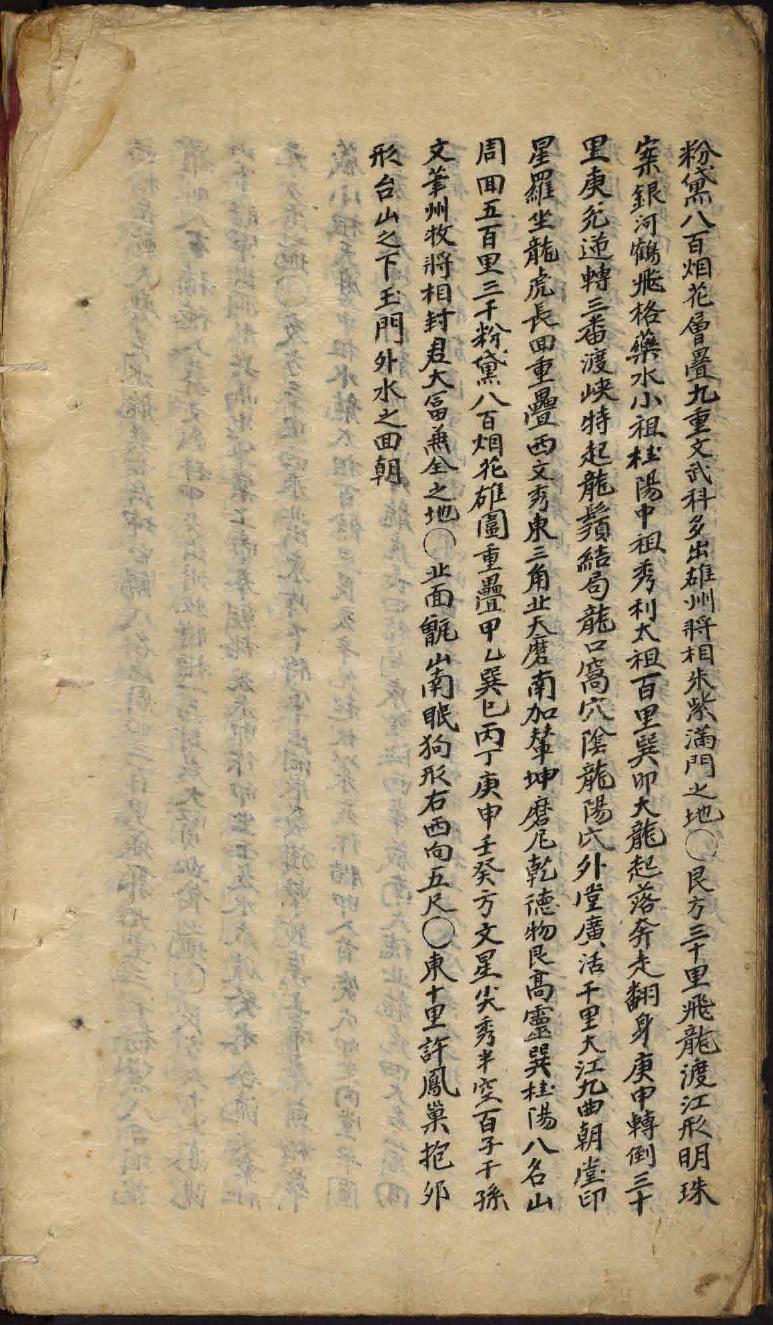 粉黛八百烟花層疊九重文武科多出雄州將相朱紫滿門之地〇艮方三十里飛龍渡江形明珠
案銀河鶴飛格藥水小祖桂陽中祖秀利太祖百里巽卯大龍起落奔走翻身庚申轉倒三十
里庚兌逆轉三番渡峽特起龍鬚結局龍口窩穴陰龍陽穴外堂廣活千里大江九曲朝堂印
星羅坐龍虎長回重疊西文秀東三角北天磨南加輦坤磨尼乾德物艮高靈巽桂陽八名山
周回五百里三千粉黛八百烟花雄圍重疊甲乙巽巳丙丁庚申壬癸方文星尖秀半空百子千孫
文筆州牧將相封君大富兼全之地〇北面甑山南眠狗形右西向五尺〇東十里許鳳巢抱卵
形台山之下玉門外水之回朝